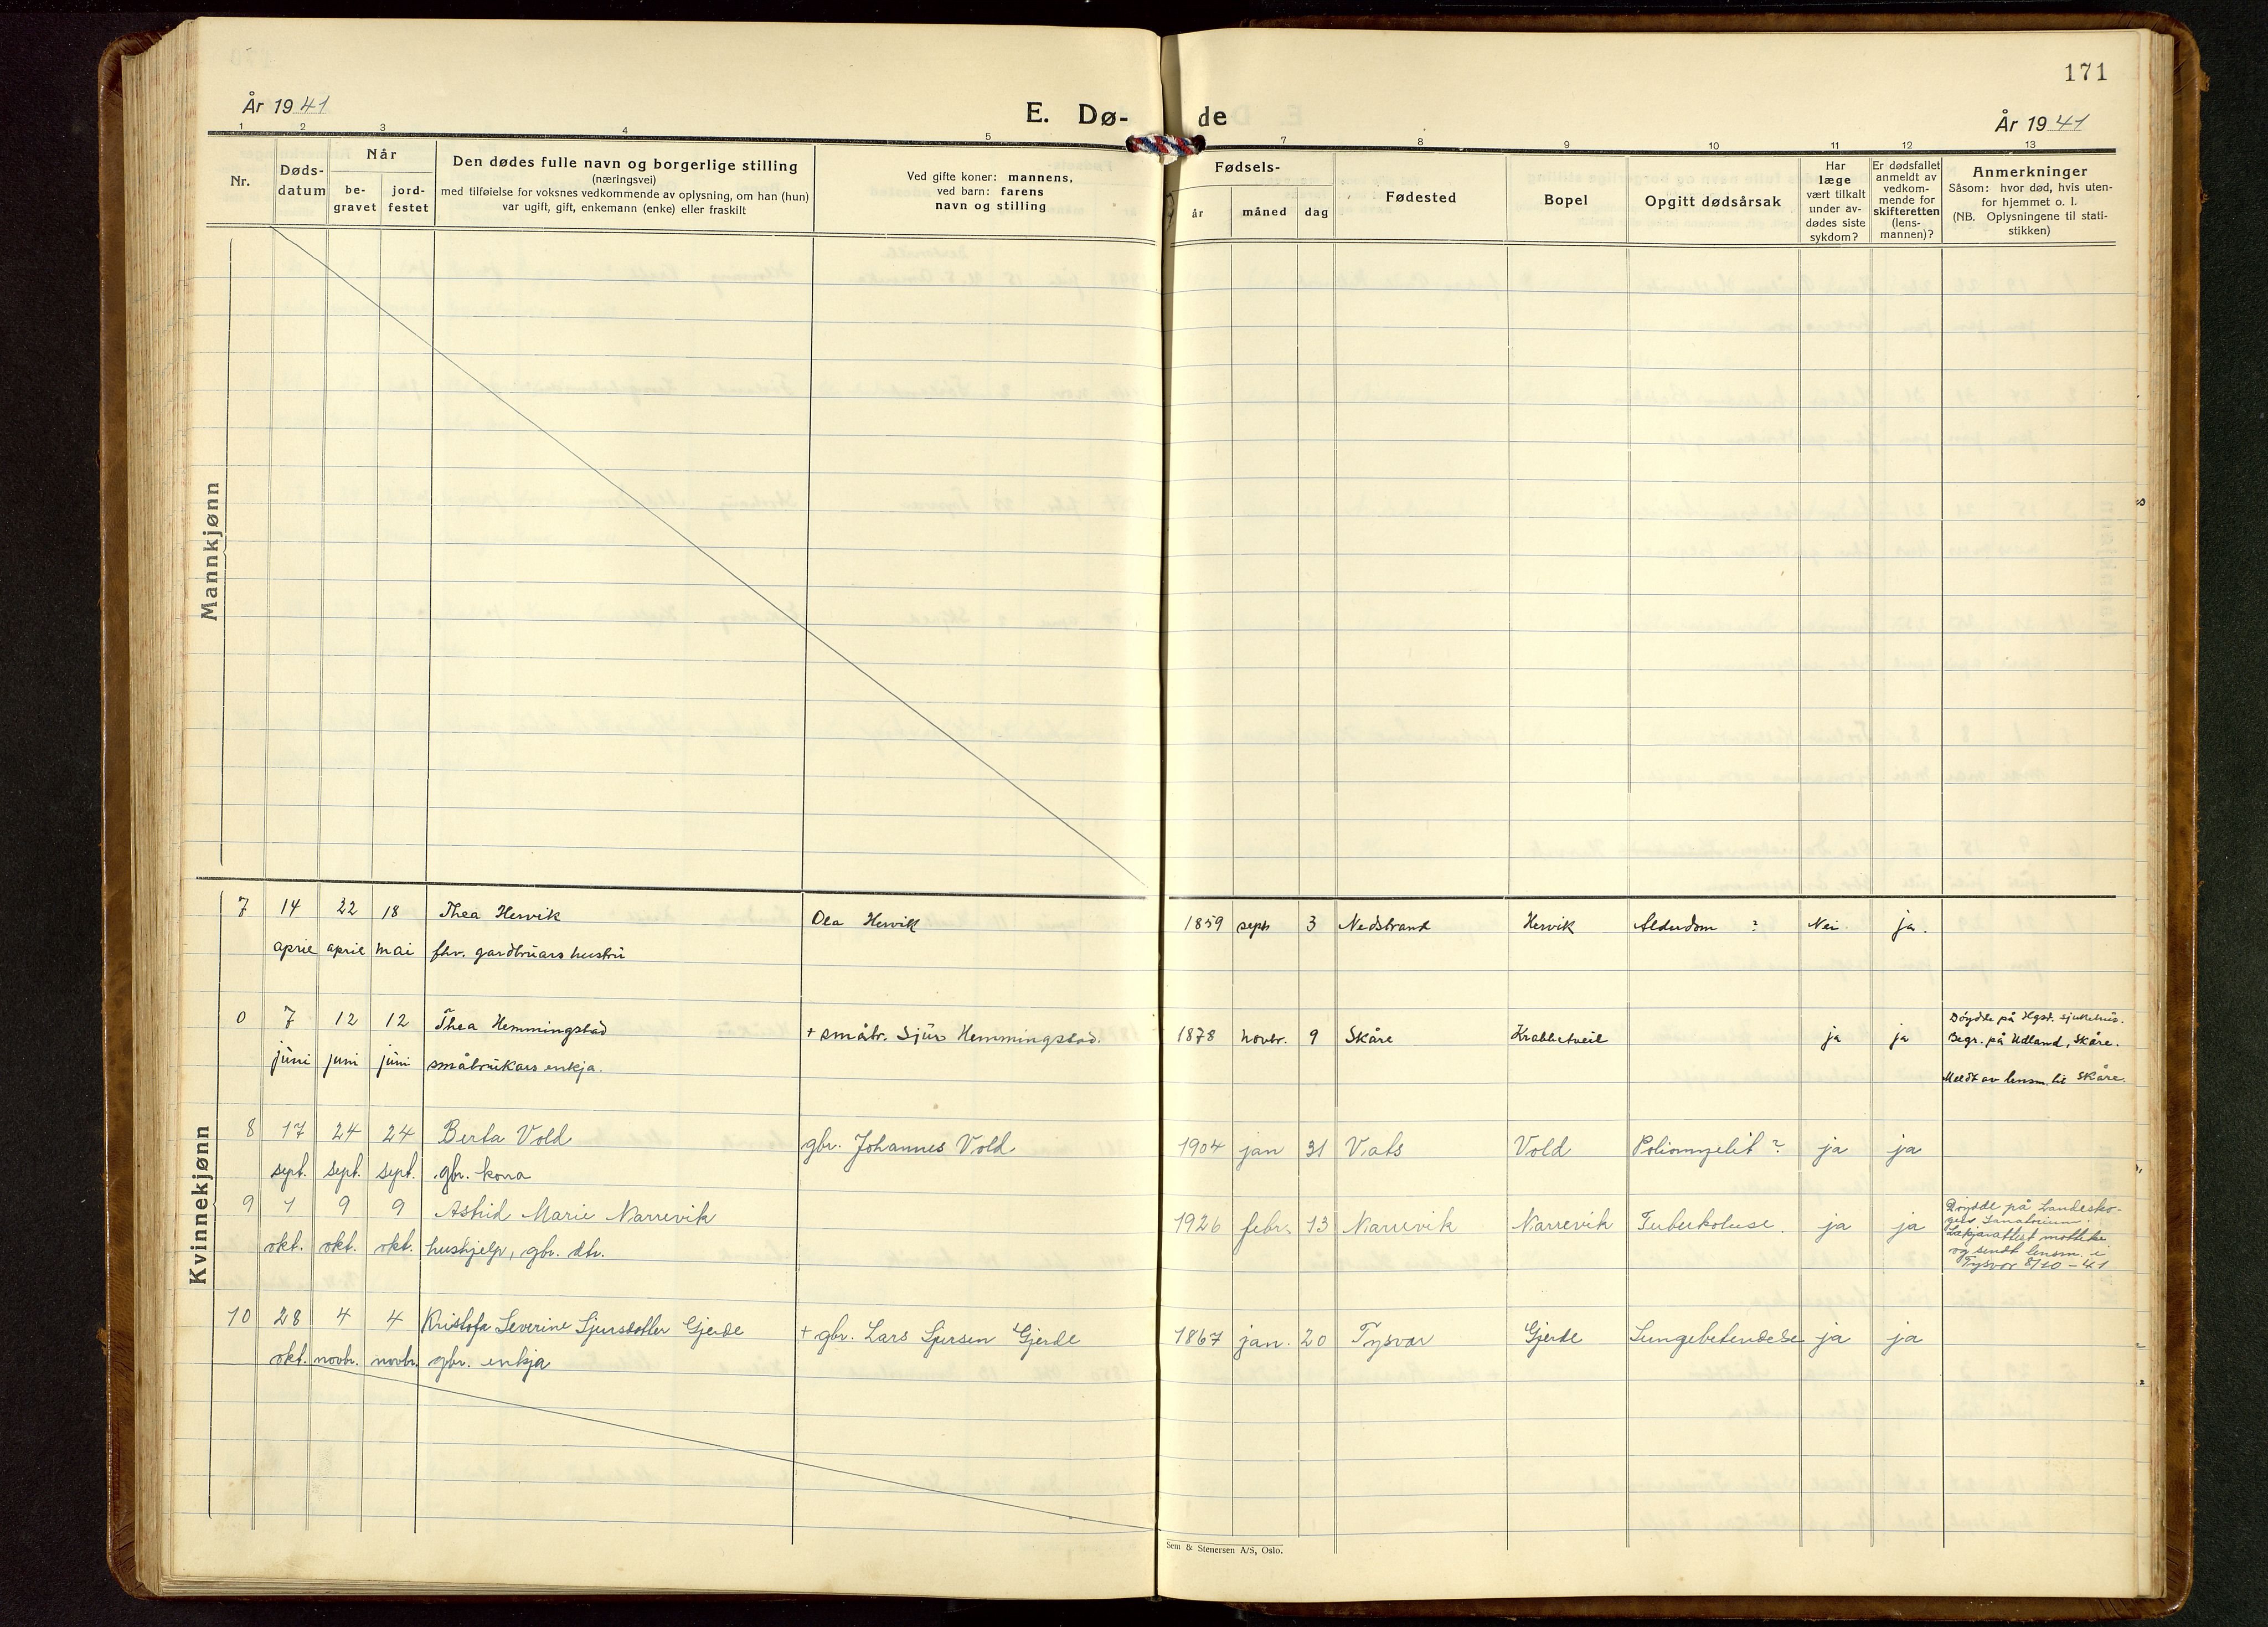 171
År 1941
E. Dø-
de
År 1941
1 2 3 4 5 7 8 9 10 11 12 13
Nr.
Døds-
datum
Når
be-
gravet
jord-
festet
Den dødes fulle navn og borgerlige stilling
(næringsvei)
med tilføielse for voksnes vedkommende av oplysning, om han (hun)
var ugift, gift, enkemann (enke) eller fraskilt
Ved gifte koner: mannens,
ved barn: farens
navn og stilling
Fødsels-
år måned dag
Fødested
Bopel
Opgitt dødsårsak
Har
læge
vært tilkalt
under av-
dødes siste
sykdom?
Er dødsfallet
anmeldt av
vedkom-
mende for
skifteretten
(lens-
mannen)?
Anmerkninger
Såsom: hvor død, hvis uten-
for hjemmet o. l.
(NB. Oplysningene til stati-
stikken)
Mannkjønn
Kvinnekjønn
7 14 22 18 Thea Hervik Ola Hervik 1859 sept 3 Nedstrand Hervik Alderdom ? Nei ja.
april april mai fhv. gardbruars hustru
0 7 12 12 Thea Hemmingstad + småbr. Sjur Hemmingstad. 1878 novbr. 9 Skåre Krabbetveit ja ja
juni juni juni småbrukars enkja.
Döydde på Hgsd. sjukehus.
Begr. på Udland, Skåre.
Meldt av lensm. til Skåre.
8 17 24 24 Berta Vold gbr. Johannes Vold 1904 jan 31 Vats Vold Poliomyelit ? ja ja
sept. sept. sept. gbr. kona
9 1 9 9 Astrid Marie Narrevik 1926 febr. 13 Narrevik Narrevik Tuberkulose. ja ja
okt. okt. okt. hushjelp, gbr. dtr.
Döydde på Landesko-
gens Sanatorium.
Lækjarattest motteke
og sendt lensm. i
Tysvær 8/10 - 41
10 28 4 4 Kristofa Severine Sjursdotter Gjerde + gbr. Lars Sjursen Gjerde 1867 jan. 20 Tysvær Gjerde Lungebetendelse ja ja
okt. novbr. novbr. gbr. enkja
Sem & Stenersen A/S, Oslo.